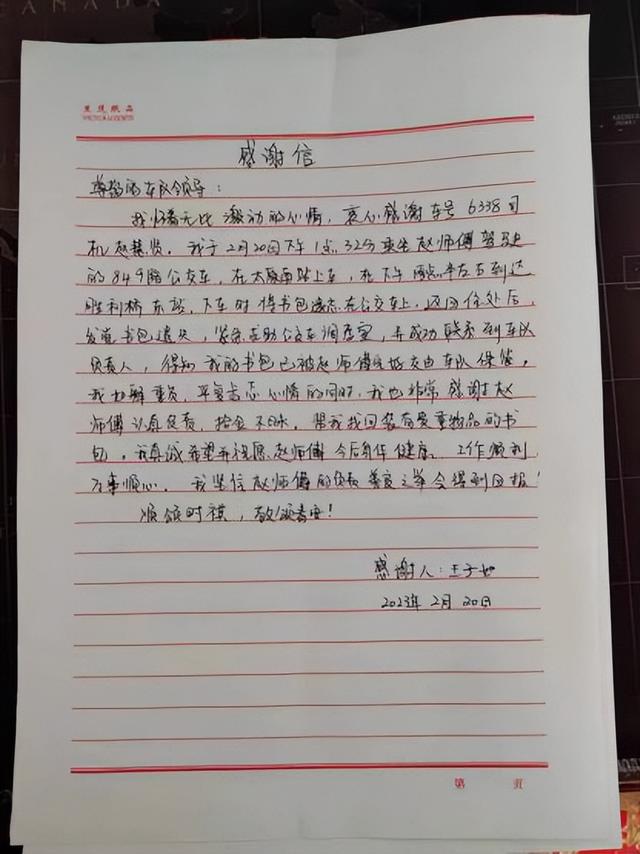 感谢信
尊敬的车队领导:
我怀着无比激动的心情,衷心感谢车号6338司
机赵慧贤。我于2月20日下午1点32分乘坐赵师傅驾驶
的849路公交车,在太原南站上车,在下午两点半左右到达
胜利桥东站,下车时将书包遗忘在公交车上,返回住处后,
发现书包遗失,紧急求助公交车调度室,并成功联系到车队
负责人,得知我的书包已被赵师傅良好交由车队保管。
我如释重负,平复忐忑心情的同时,我也非常感谢赵
师傅认真负责,拾金不昧,帮我找回装有贵重物品的书
包。我真诚希望并祝愿赵师傅今后身体健康、工作顺利
万事顺心。我坚信赵师傅的负责善良之举会得到回报!
顺颂时祺,敬颂春安!
感谢人:王子
2023年2月20日
第 页